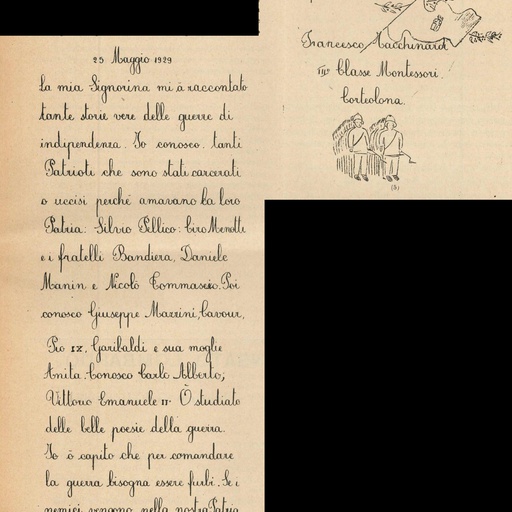 25 Maggio 1929
La mia Signorina mi à raccontato
tante storie vere delle guerre di
indipendenza. Io conosco tanti
Patrioti che sono stati carcerati
o uccisi perché amavano la loro
Patria: Silvio Pellico: Ciro Menotti
e i fratelli Bandiera, Daniele
Manin e Nicolò Tommaseo. Poi
conosco Giuseppe Mazzini, Cavour,
Pio IX, Garibaldi e sua moglie
Anita. Conosco Carlo Alberto;
Vittorio Emanuele II. Ò studiato
delle belle poesie della guerra.
Io ò capito che per comandare
la guerra bisogna essere furbi. Se i
nemici vengono nella nostra Patria
Francesco Macchinardi
IIIª Classe Montessori.
Corteolona.